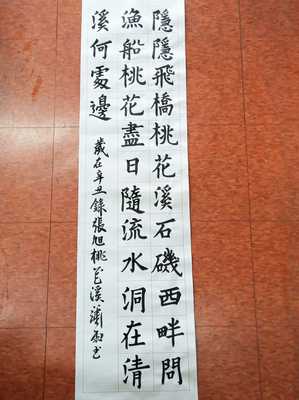 隱隱飛橋桃花溪石磯西畔問
漁船桃花盡日隨流水洞在清
溪何處邊
歲在辛丑錄張旭桃花溪 书